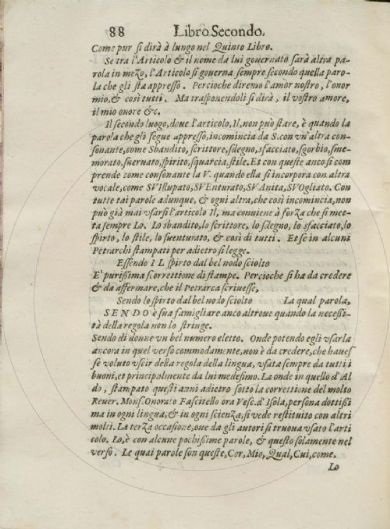 88 Libro Secondo.
Come pur si dirà à lungo nel Quinto Libro.
Se tra l'Articolo & il nome da lui gouernato sarà altra pa-
rola in mezo, l'Articolo si gouerna sempre secondo quella paro-
la che gli sta appresso. Percioche diremo l'amor nostro, l'onor
mio, & così tutti. Ma trasponendoli si dirà, il vostro amore,
il mio onore &c.
Il secondo luogo, doue l'articolo, Il, non può stare, è quando la
parola che gli segue appresso, incomincia da S. con vn'altra con-
sonante, come Sbandito, scrittore, sdegno, sfacciato, sgorbio, sme-
morato, sneruato, spirito, squarcia, stile. Et con queste anco si com
prende come consonante la V. quando ella si incorpora con altra
vocale, come SVIlupato, SVEnturato, SVAnita, SVOgliato. Con
tutte tai parole adunque, & ogni altra, che così incomincia, non
può già mai vsarsi l'articolo Il, ma conuiene à forza che si met-
ta sempre Lo. Lo sbandito, lo scrittore, lo sdegno, lo sfacciato, lo
spirto, lo stile, lo suenturato, & così di tutti. Et se in alcuni
Petrarchi stampati per adietro si legge.
Essendo IL spirto dal bel nodo sciolto
E' purissima scorrettione di stampe. Percioche si ha da credere
& da affermare, che il Petrarca scriuesse,
Sendo lo spirto dal bel no lo sciolto La qual parola,
SENDO è sua famigliare anco altroue quando la necessi-
tà della regola non lo stringe.
Sendo di donne vn bel numero eletto. Onde potendo egli vsarla
ancora in quel verso commodamente, non è da credere, che haues
se voluto vscir della regola della lingua, vsata sempre da tutti i
buoni, et principalmente da lui medesimo. La onde in quello d'Al
do, stampato questi anni adietro sotto la correttione del molto
Reuer. Mons. Onorato Fascitello ora Vesc. d'Isola, persona dottissi
ma in ogni lingua, & in ogni scienza, si vede restituito con altri
molti. La terza occasione, oue da gli autori si truoua vsato l'arti
colo. Lo, è con alcune pochissime parole, & questo solamente nel
verso. Le quai parole son queste, Cor, Mio, Qual, Cui, come.
Lo